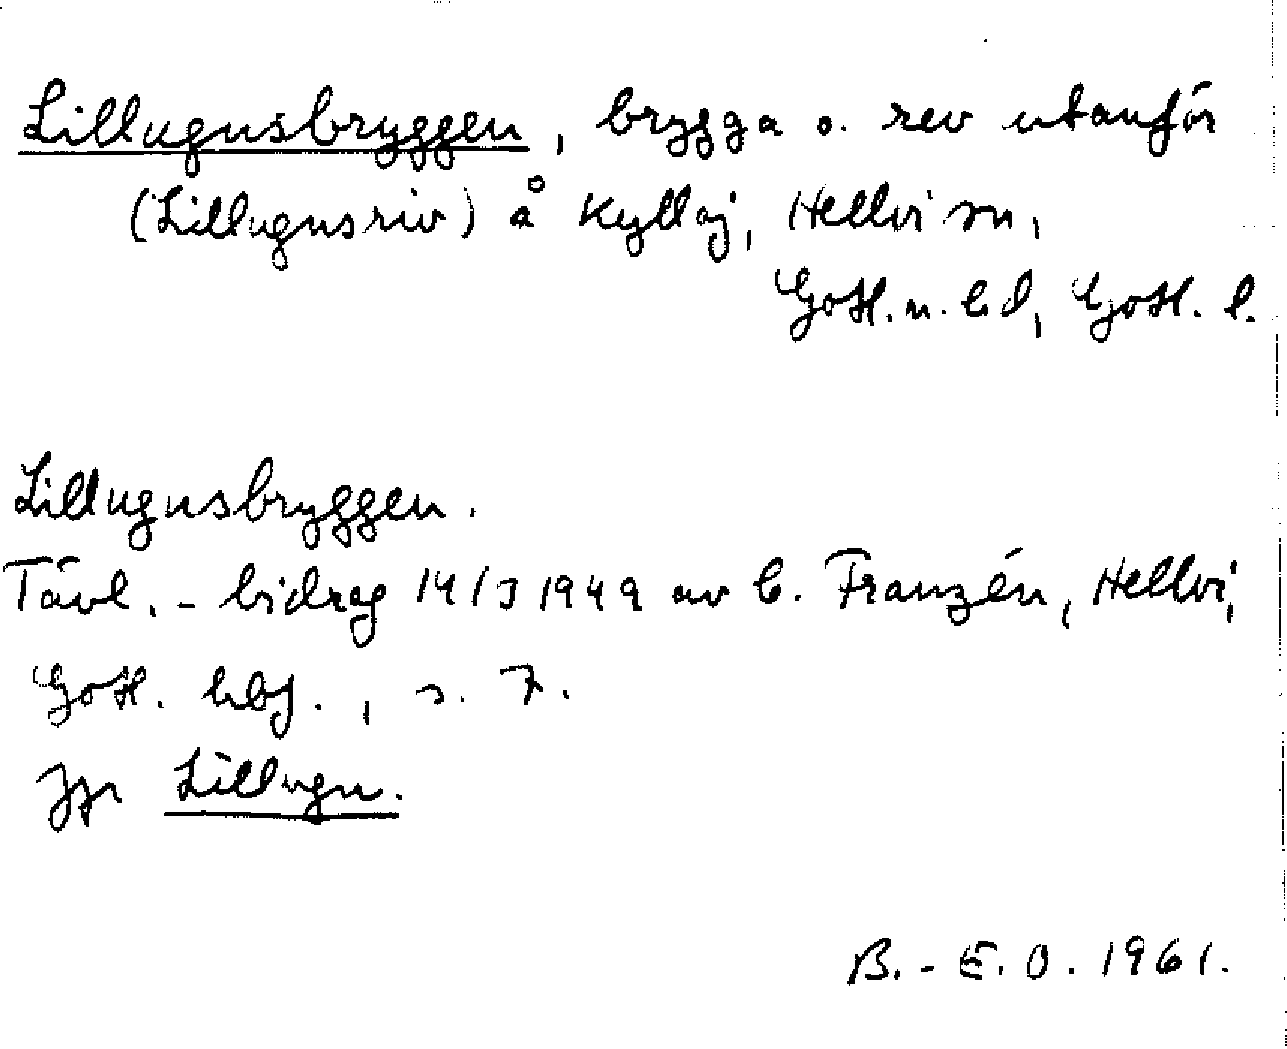 Lillugnsbryggen, brygga o. rev utanför
(Lillugnsriv) å Kyllaj, Hellvi sn,
Gotl. n. hd, Gotl. l.
Lillugnsbryggen.
Tävl.-bidrag 14/3 1949 av E. Franzén, Hellvi,
Gotl. hbf., s. 7.
Jfr Lillugn.
B.-E.O. 1961.